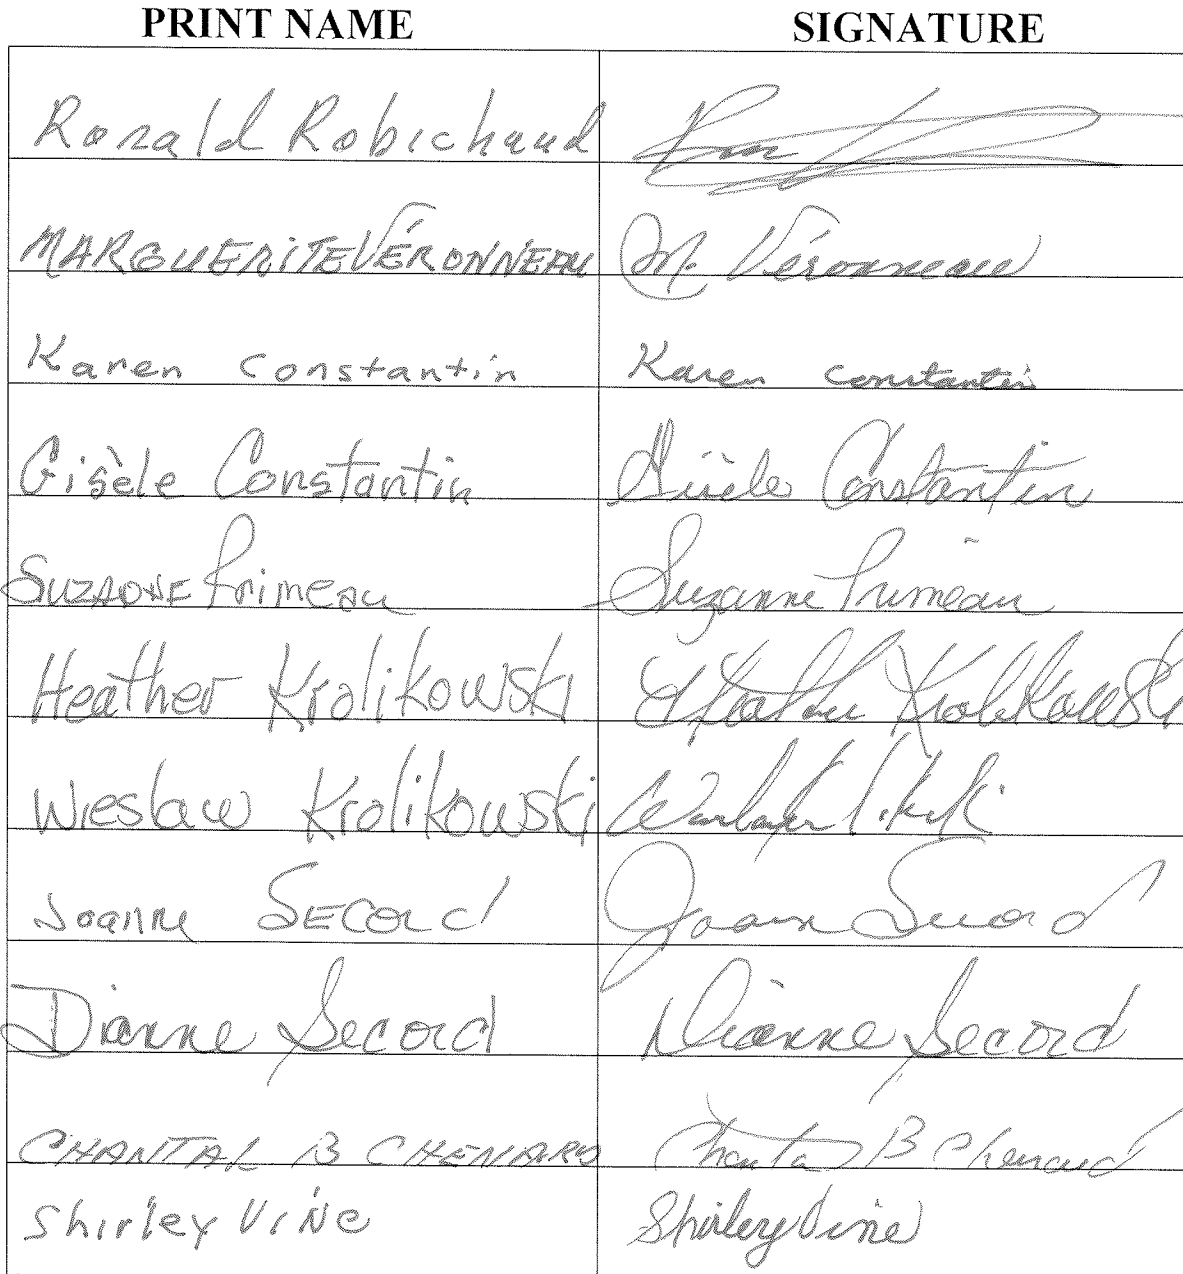 PRINT NAME SIGNATURE
Ronald Robichaud
MARGUERITE VÉRONNEAU M. Véronneau
Karen Constantin Karen Constantin
Gisèle Constantin Gisèle Constantin
SUZANNE Primeau Suzanne Primeau
Heather Krolikowski Heather Krolikowski
Wieslaw Krolikowski
Joanne SECord Joanne Secord
Dianne Secord Dianne Secord
CHANTAL B CHENARD Chantal B Chenard
Shirley ViNe Shirley Vine